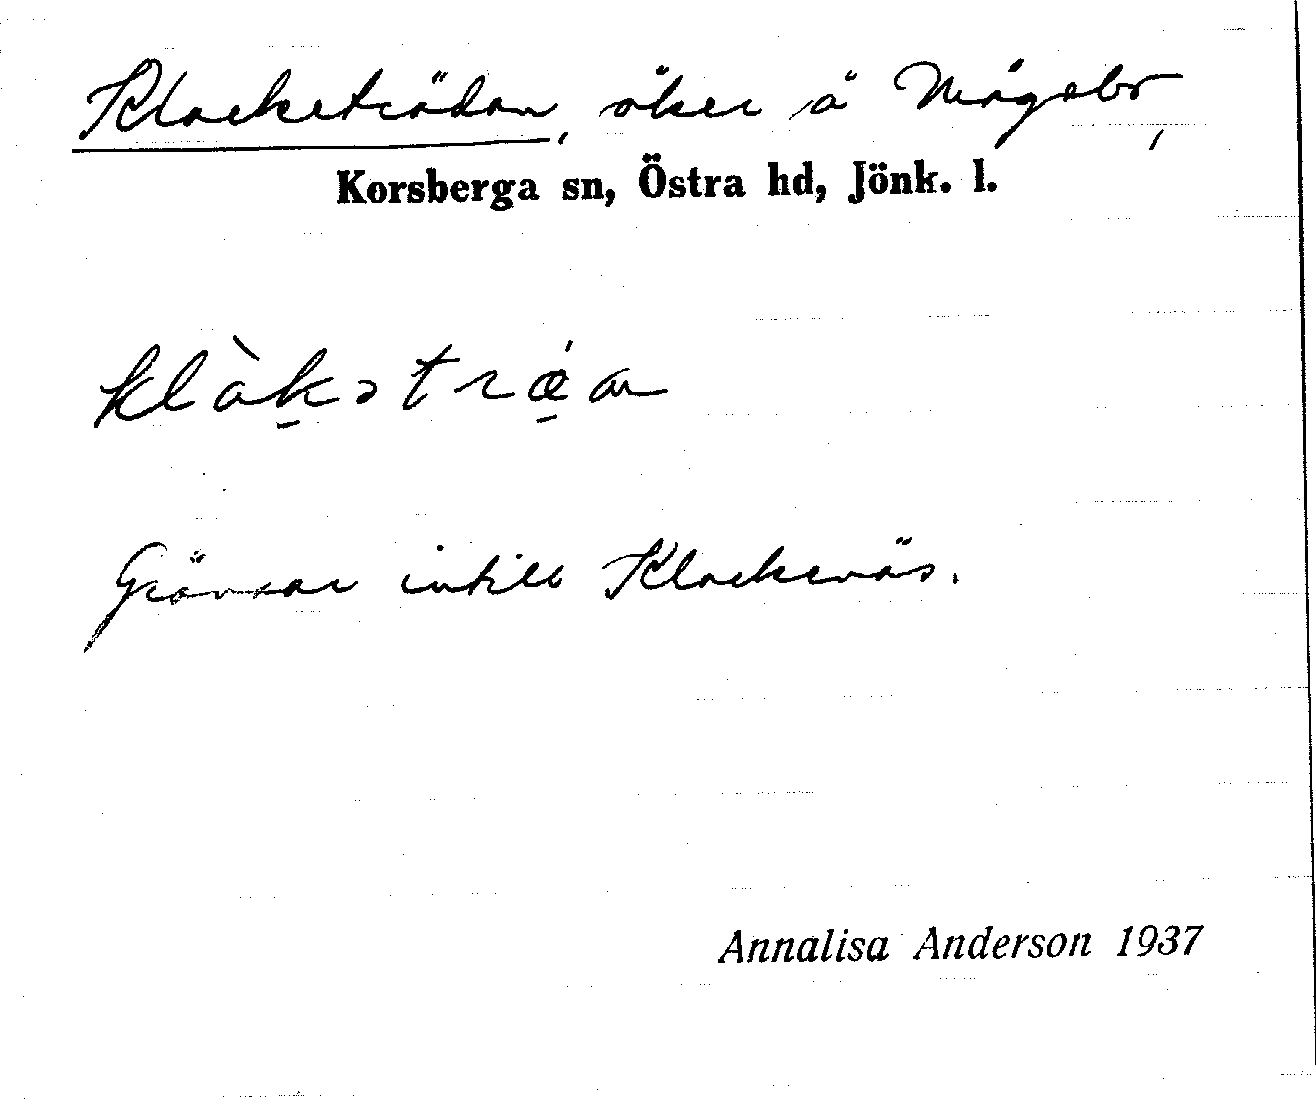 Klocketrädan, åker å Mågabo,
Korsberga sn, Östra hd, Jönk. l.
klàkətrǽan
Gränsar intill Klockenäs.
Annalisa Anderson 1937